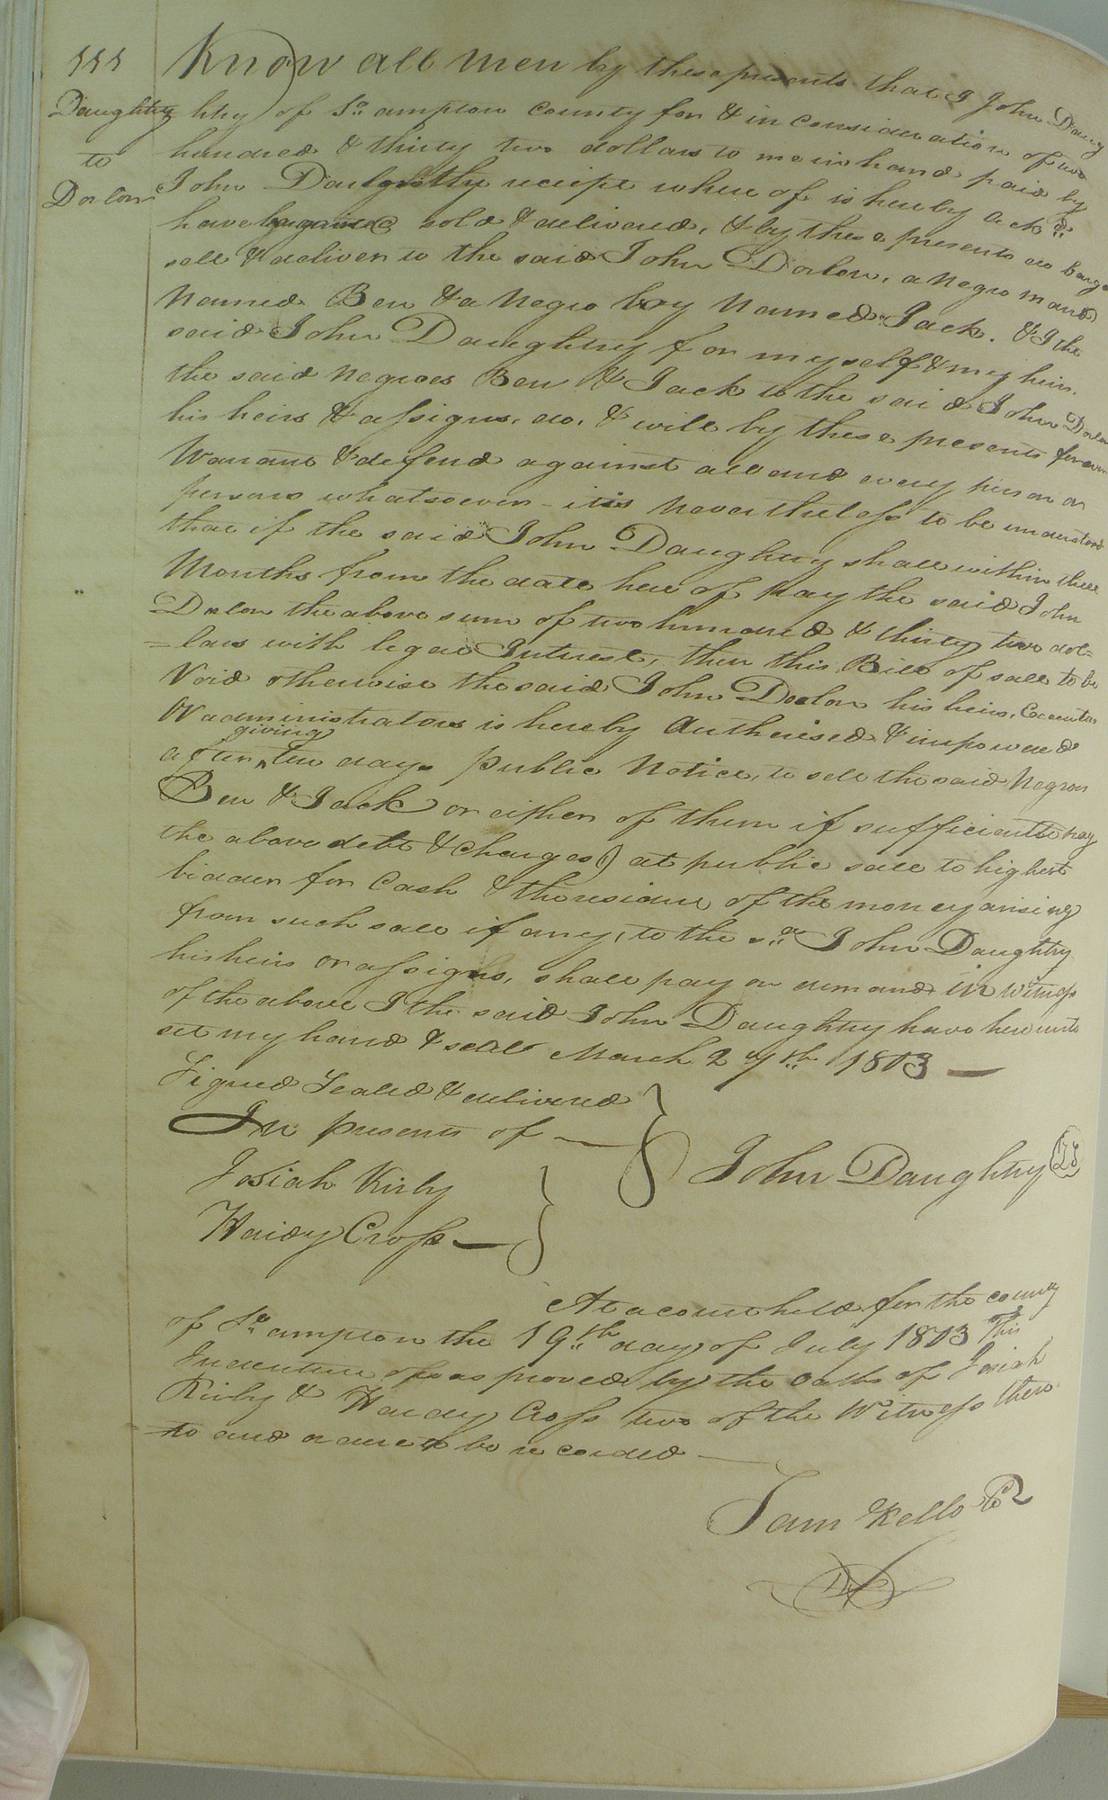 555
Daughtry
to
Dorlon
Know all men by these presents that I John Daug
htry of So. ampton county for & in consideration of two
hundred & thirty two dollars to me in hand paid by
John Daughtry receipt where of is hereby ackd.
have bargained sold & delivered, & by these presents do barga
sell & deliver to the said John Dorlon, a negro man
Named Ben & a Negro boy Named Jack. & I the
said John Daughtry for myself & my heirs.
the said negroes Ben & Jack to the said John Dorlon
his heirs & assigns, do, & will by these presents forever
Warrant & defend against all and every person or
persons whatsoever - it is nevertheless to be understood
that if the said John Daughtry shall within three
Months from the date here of pay the said John
Dorlon the above sum of two hundred & thirty two dol=
=lars with legal Interest, then this Bill of sale to be
Void otherwise the said John Dorlon his heirs, Executors
Or administrators is hereby Autherised & impowered
giving
after ten days public Notice, to sell the said Negroes
Ben & Jack or either of them if sufficient to pay
the above debt & charges) at public sale to highest
bidder for Cash & the residue of the money arising
from such sale if any, to the sd. John Daughtry
his heirs or assigns, shall pay on demand in witness
of the above I the said John Daughtry have hereunto
set my hand & seal March 27th. 1803 —
Signed Sealed & delivered
In presents of —
John Daughtry LS
Josiah Kirby
Hardy Cross —
At a court held for the county
of So. ampton the 19th. day of July 1803 This
Indenture was proved by the oaths of Josiah
Kirby & Hardy Cross two of the Witness there
to and ordered to be recorded —
Sam Kello Cr